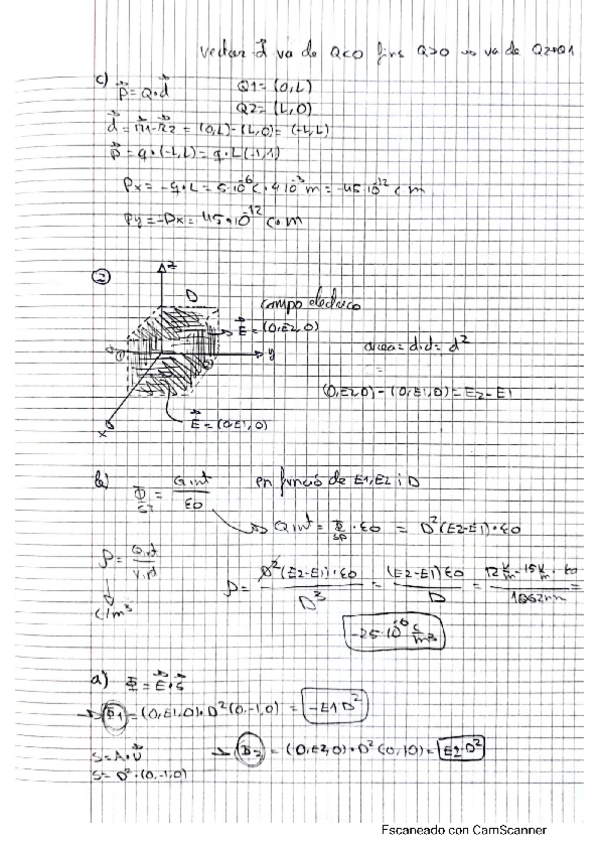 vector d⃗ va de Q<0 fins Q>0 → va de Q2→Q1
c) p⃗ = Q·d⃗ Q1 = (0,L)
Q2 = (L,0)
d⃗ = r⃗1 - r⃗2 = (0,L)-(L,0) = (-L,L)
p⃗ = q·(-L,L) = q·L(-1,1)
Px = -q·L =
Py = -Px =
②
z
D
campo eléctrico
E⃗ = (0,E2,0)
y
area = d·d = d²
(0,E2,0) - (0,E1,0) = E2-E1
E⃗ = (0,E1,0)
x
b) Φ = Qint/ε0 en funció de E1, E2 i D
Qint = Φ·ε0 = D²(E2-E1)·ε0
ρ = Qint/Vint
C/m³
ρ = D²(E2-E1)·ε0/D³ = (E2-E1)ε0/D =
-25·10⁻⁶ C/m³
a) Φ = E⃗·S⃗
Φ1 = (0,E1,0)·D²(0,-1,0) = -E1D²
S = A·U⃗ Φ2 = (0,E2,0)·D²(0,1,0) = E2·D²
S = D²·(0,-1,0)
Escaneado con CamScanner